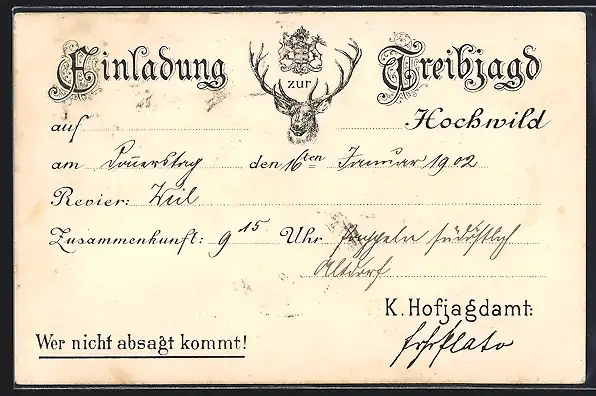 Einladung zur Treibjagd
auf Hochwild
am Donnerstag den 16ten Januar 1902
Revier: Weil
Zusammenkunft: 9 15 Uhr südöstlich
Altdorf
K. Hofjagdamt:
Wer nicht absagt kommt!
Plato